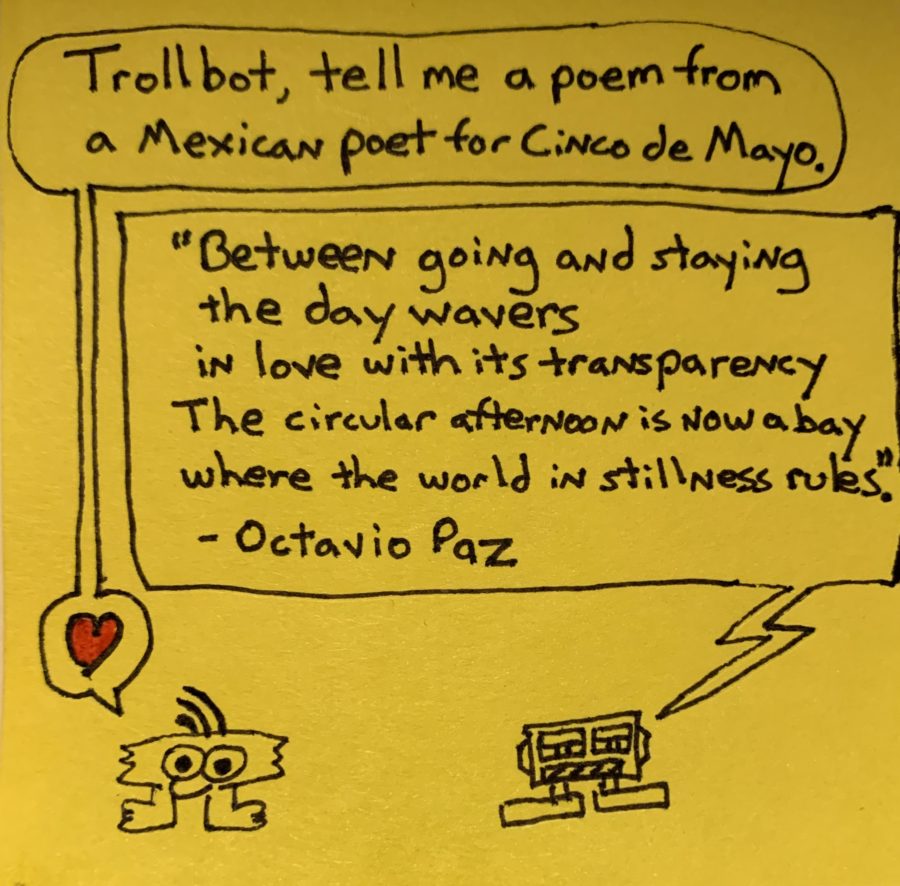 Trollbot, tell me a poem from
a Mexican poet for Cinco de Mayo.
"Between going and staying
the day wavers
in love with its transparency
The circular afternoon is now a bay
where the world in stillness rules."
- Octavio Paz